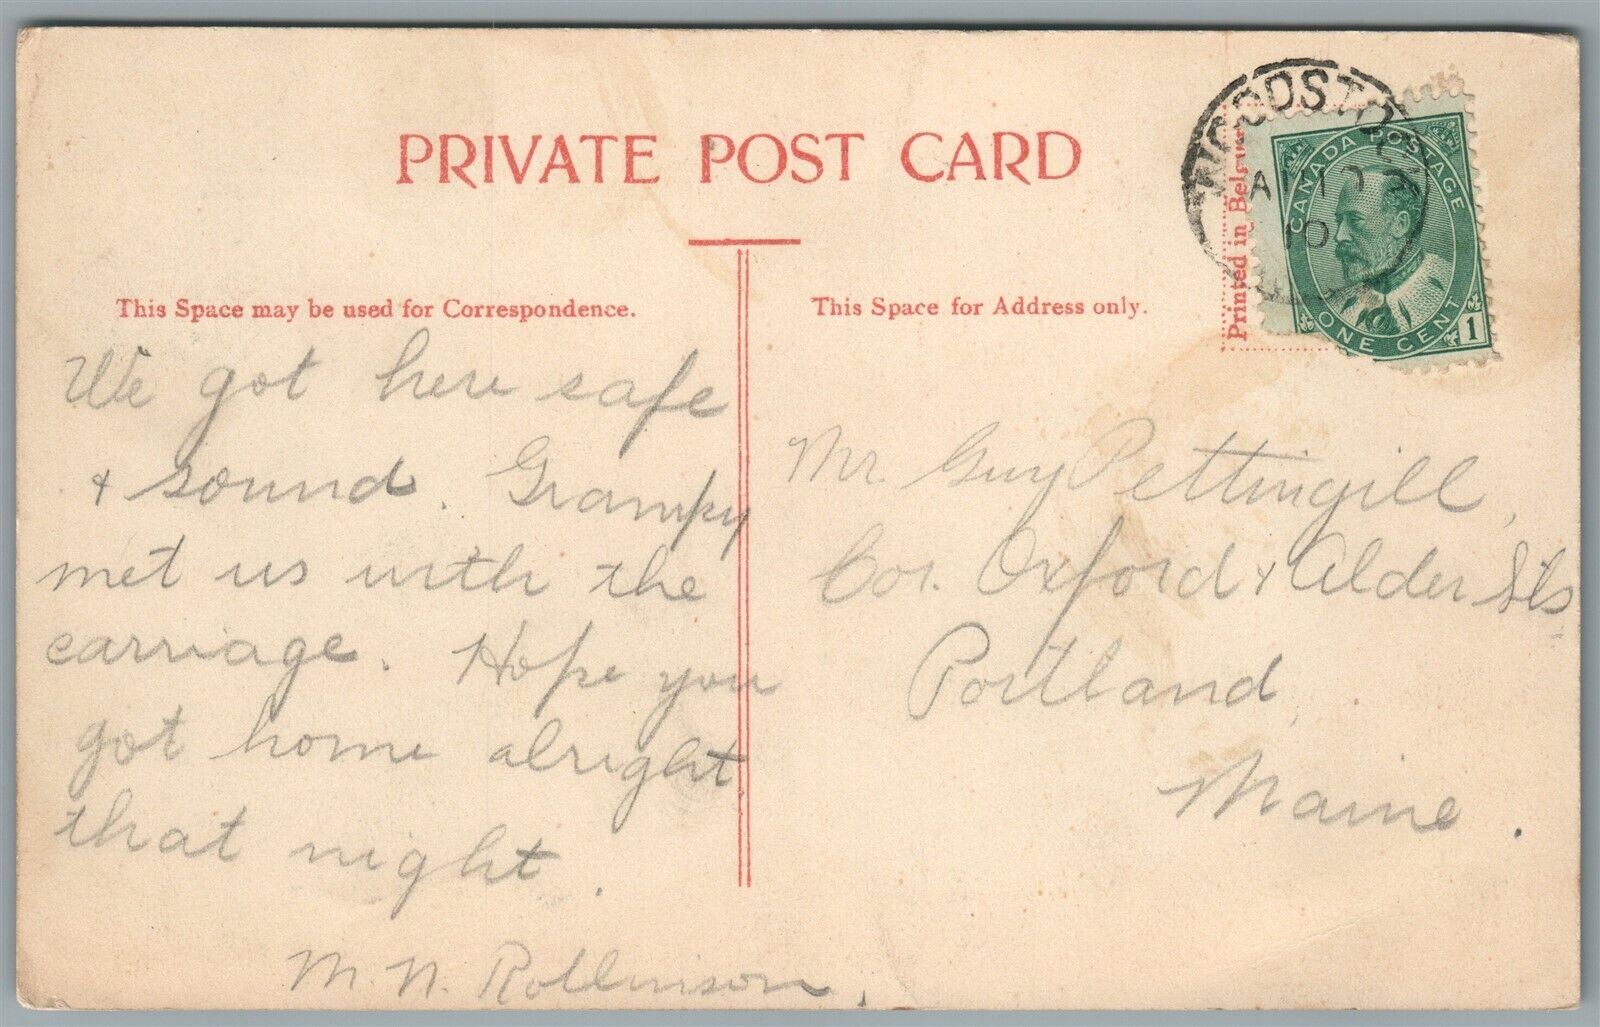 PRIVATE POST CARD
This Space may be used for Correspondence.
We got here safe
+ sound. Grampy
met us with the
carriage. Hope you
got home alright
that night.
M. N. Rollinson,
This Space for Address only.
Printed in Belgium
CANADA POSTAGE
ONE CENT
1
10
Mr. Guy Pettingill,
Cor. Oxford + Alder Sts
Portland,
Maine.